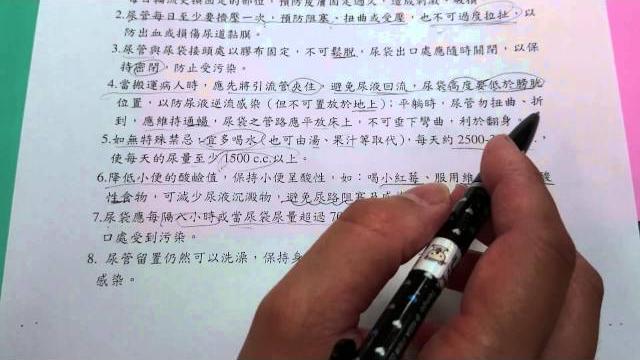 每日輪流更換固定的部位，預防皮膚固定過久，造成刺激、破損
2.尿管每日至少要擠壓一次，預防阻塞、扭曲或受壓，也不可過度拉扯，以
防出血或損傷尿道黏膜。
3.尿管與尿袋接頭處以膠布固定，不可鬆脫，尿袋出口處應隨時關閉，以保
持密閉，防止受污染。
4.當搬運病人時，應先將引流管夾住，避免尿液回流，尿袋高度要低於膀胱
位置，以防尿液逆流感染（但不可置放於地上）；平躺時，尿管勿扭曲、折
到，應維持通暢，尿袋之管路應平放床上，不可垂下彎曲，利於翻身。
5.如無特殊禁忌，宜多喝水（也可由湯、果汁等取代），每天約 2500-
使每天的尿量至少 1500 c.c.以上。
6.降低小便的酸鹼值，保持小便呈酸性，如：喝小紅莓、服用維 酸
性食物，可減少尿液沉澱物，避免尿路阻塞及
7.尿袋應每隔八小時或當尿袋尿量超過 70
口處受到污染。
8. 尿管留置仍然可以洗澡，保持身
感染。